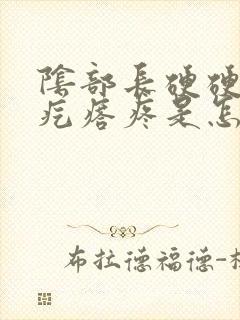 陰部長硬硬
疙瘩疼是怎
布拉德福德-